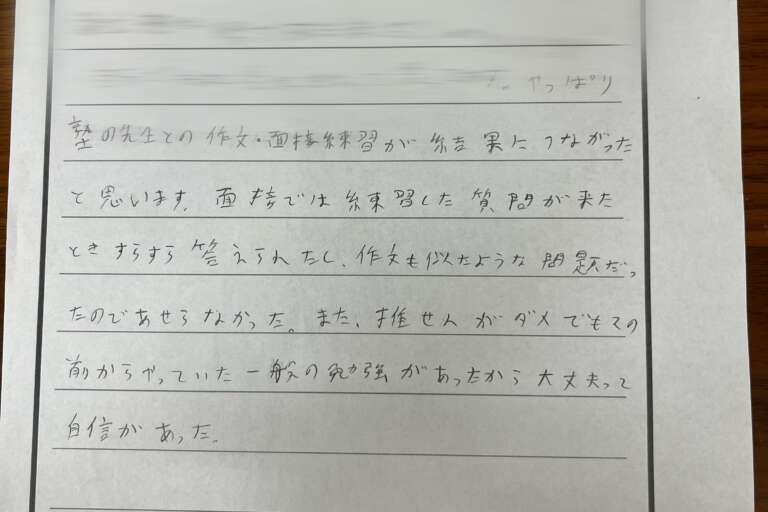 やっぱり
塾の先生との作文・面接練習が結果につながった
と思います。面接では練習した質問が来た
ときすらすら答えられたし、作文も似たような問題だっ
たのであせらなかった。また、推せんがダメでもその
前からやっていた一般の勉強があったから大丈夫って
自信があった。